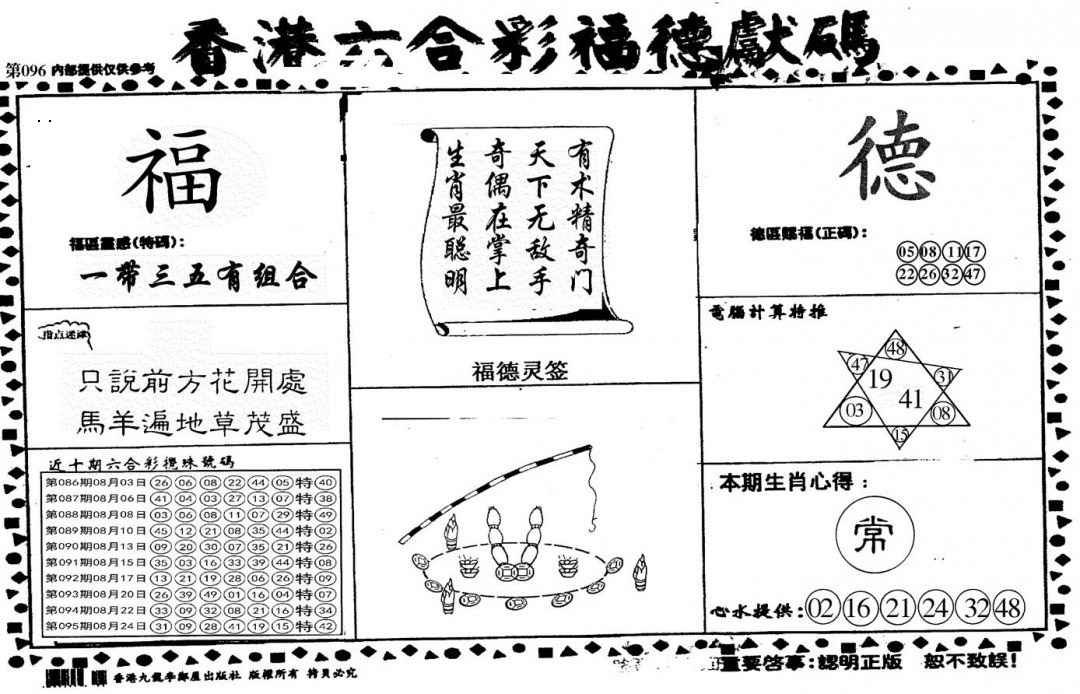 香港六合彩福德獻碼
第096 内部提供仅供参考
福
福區靈感(特碼):
一帶三五有组合
指点迷津
只說前方花開處
馬羊遍地草茂盛
近十期六合彩攪珠號碼
第086期08月03日 26 06 08 22 44 05 特 40
第087期08月06日 41 04 03 27 13 07 特 38
第088期08月08日 03 06 08 11 07 29 特 49
第089期08月10日 45 12 21 08 35 44 特 02
第090期08月13日 09 20 30 07 35 21 特 26
第091期08月15日 35 03 16 33 39 44 特 08
第092期08月17日 13 21 19 28 06 26 特 09
第093期08月20日 26 39 49 01 16 04 特 07
第094期08月22日 33 09 32 08 21 16 特 34
第095期08月24日 31 09 28 41 19 15 特 42
有术精奇门
天下无敌手
奇偶在掌上
生肖最聪明
福德灵签
德
德區賜福(正碼):
05 08 11 17
22 26 32 47
電腦計算特推
48
47 19 31
41
03 08
15
本期生肖心得:
常
心水提供: 02 16 21 24 32 48
香港九龍李鄭屋出版社 版權所有 拷貝必究
重要啓事:認明正版 恕不致誤!